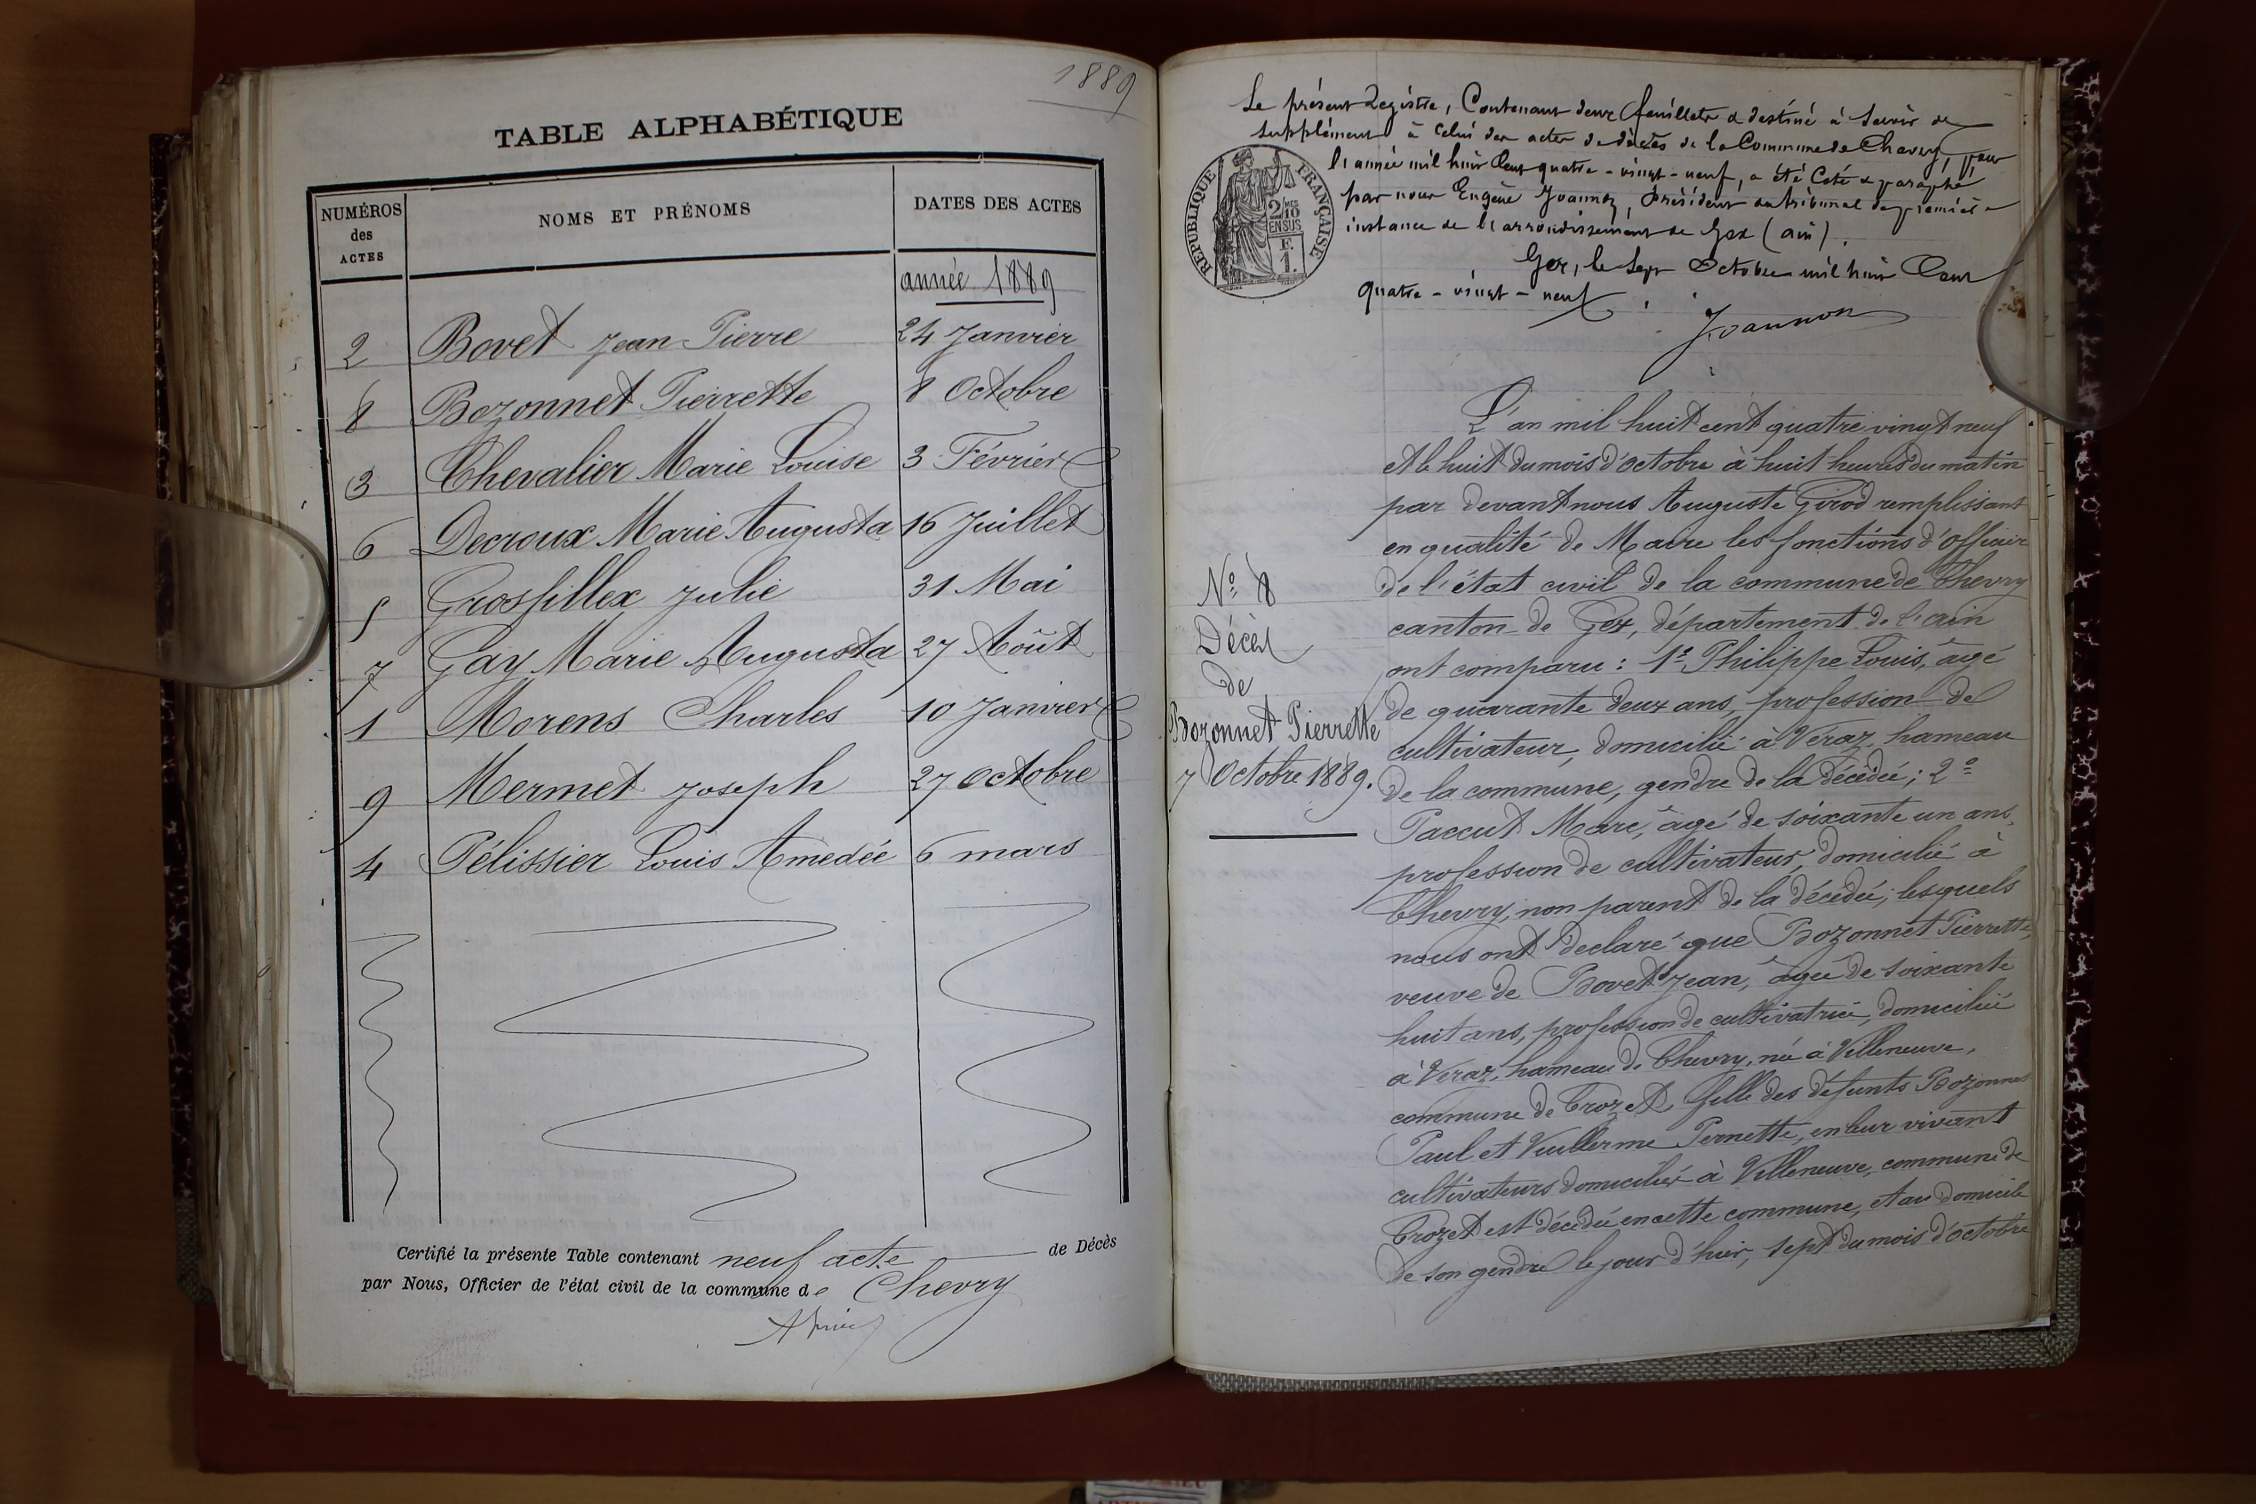 1889
TABLE ALPHABÉTIQUE
NUMÉROS des ACTES
NOMS ET PRÉNOMS
DATES DES ACTES
année 1889
2 Bovet Jean Pierre 24 Janvier
8 Bozonnet Pierrette 8 Octobre
3 Chevalier Marie Louise 3 Février
6 Decroux Marie Augusta 16 Juillet
5 Grosfillex Julie 31 Mai
7 Gay Marie Augusta 27 Août
1 Morens Charles 10 Janvier
9 Mermet Joseph 27 Octobre
4 Pélissier Louis Amedée 6 mars
Certifié la présente Table contenant neuf acte de Décès
par Nous, Officier de l'état civil de la commune de Chevry
Le présent Registre, Contenant deux feuillets & destiné à servir de
supplément à celui des actes de décès de la Commune de Chevry, pour
l'année mil huit Cent quatre-vingt-neuf, a été Coté & paraphé
par nous Eugène Joannon, Président du tribunal de première
instance de l'arrondissement de Gex (ain).
Gex, le Sept Octobre mil huit Cent
quatre-vingt-neuf.
Joannon
RÉPUBLIQUE FRANÇAISE
2/10
EN SUS
F.
1.
L'an mil huit cent quatre vingt neuf
et le huit du mois d'Octobre à huit heures du matin
par devant nous Auguste Girod remplissant
en qualité de Maire les fonctions d'Officier
de l'état civil de la commune de Chevry
canton de Gex, département de l'ain
ont comparu : 1º Philippe Louis, âgé
de quarante deux ans, profession de
cultivateur, domicilié à Véraz, hameau
de la commune, gendre de la décédée ; 2º
Paccut Marc, âgé de soixante un ans,
profession de cultivateur, domicilié à
Chevry, non parent de la décédée, lesquels
nous ont declaré que Bozonnet Pierrette,
veuve de Bovet Jean, âgée de soixante
huit ans, profession de cultivatrice, domiciliée
à Véraz, hameau de Chevry, née à Villeneuve,
commune de Crozet, fille des défunts Bozonnet
Paul et Vuillerme Pernette, en leur vivant
cultivateurs domiciliés à Villeneuve, commune de
Crozet est décédée en cette commune, et au domicile
de son gendre le jour d'hier, sept du mois d'octobre
Nº 8
Décès
de
Bozonnet Pierrette
7 Octobre 1889.